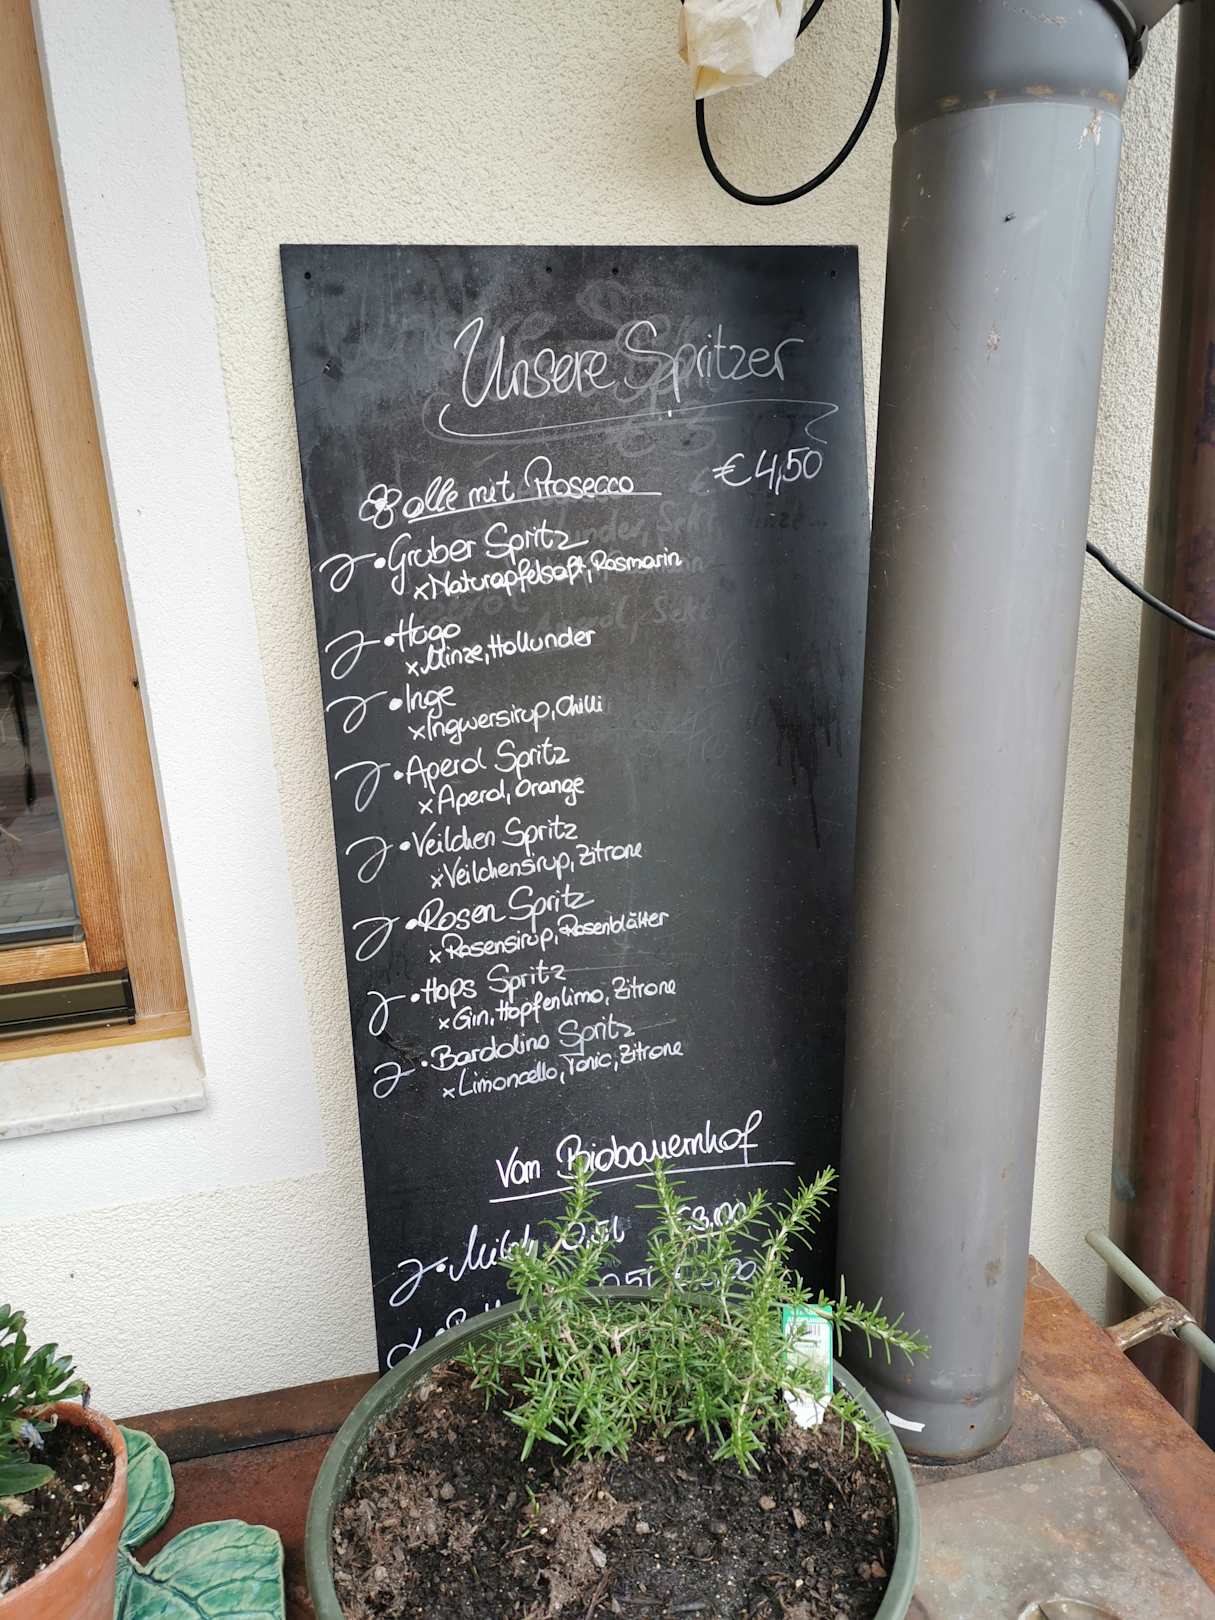 Unsere Spritzer
alle mit Prosecco €4,50
• Gruber Spritz
x Naturapfelsaft, Rosmarin
• Hugo
x Minze, Hollunder
• Inge
x Ingwersirup, Chilli
• Aperol Spritz
x Aperol, Orange
• Veilchen Spritz
x Veilchensirup, Zitrone
• Rosen Spritz
x Rosensirup, Rosenblätter
• Hops Spritz
x Gin, Hopfenlimo, Zitrone
• Bardolino Spritz
x Limoncello, Tonic, Zitrone
Vom Biobauernhof
• Milch 0,5l €3,00
0,5l